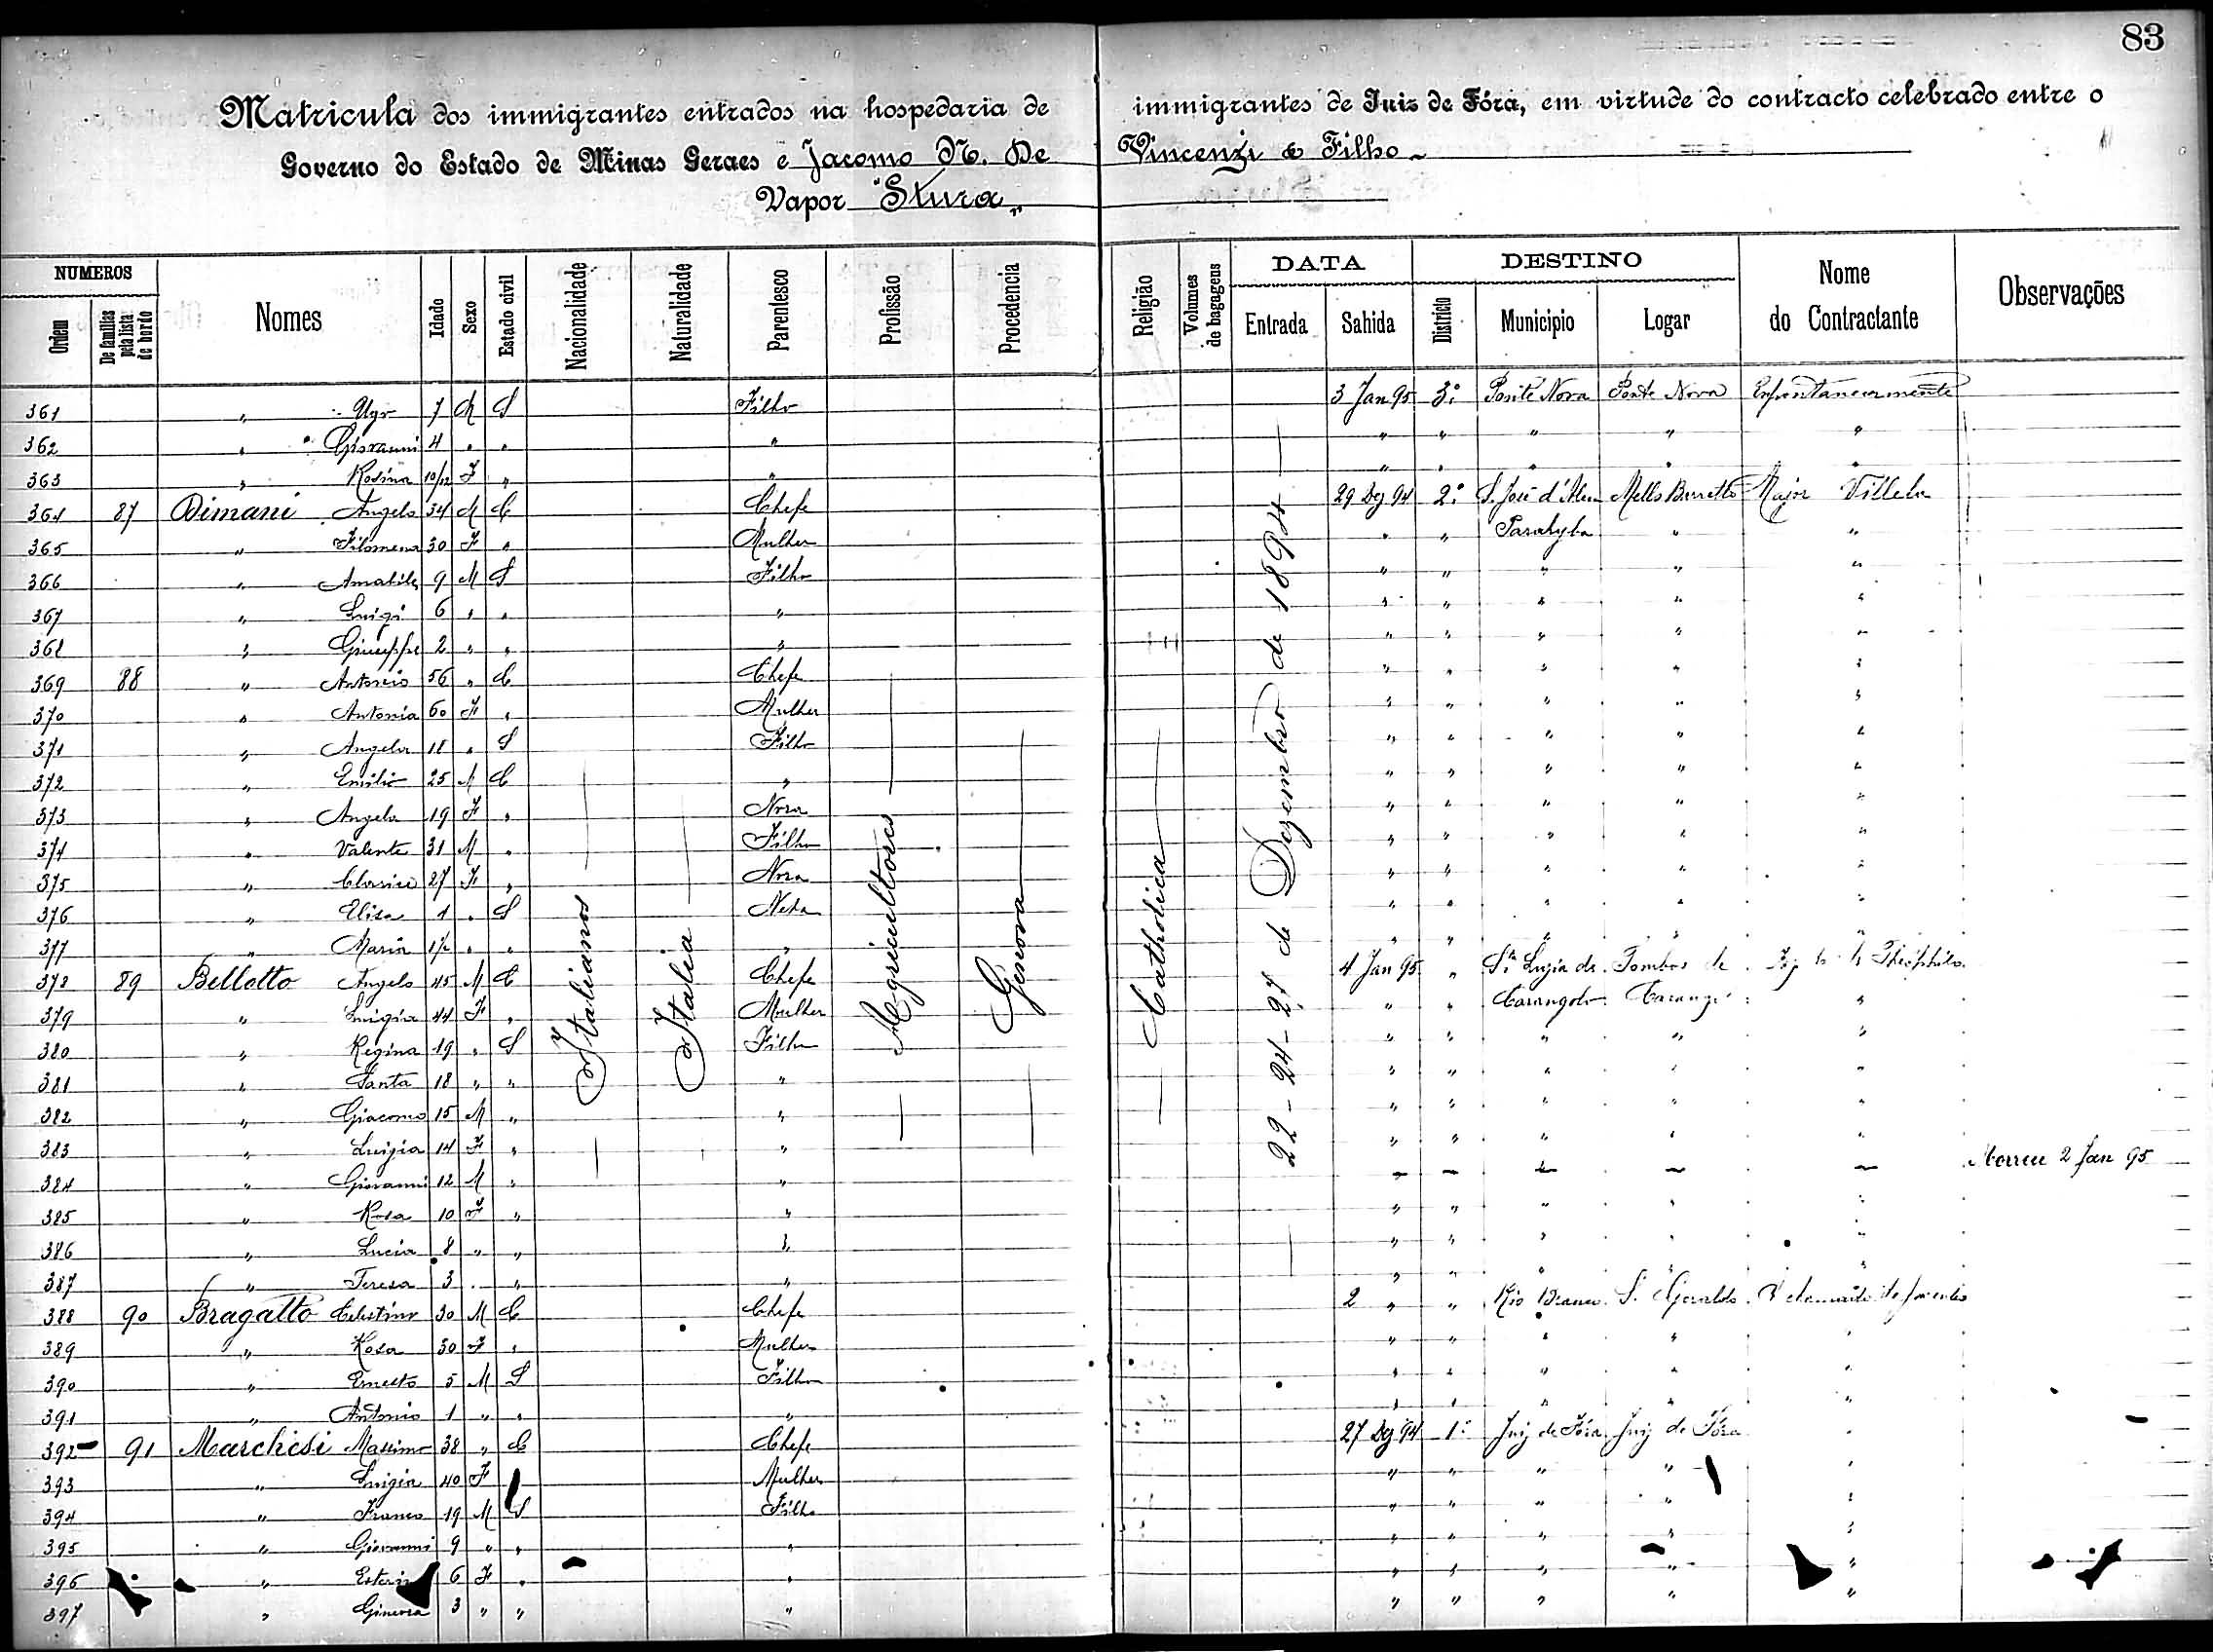 83
Matricula dos immigrantes entrados na hospedaria de immigrantes de Juiz de Fóra, em virtude do contracto celebrado entre o
Governo do Estado de Minas Geraes e Jacomo N. De Vincenzi & Filho
Vapor "Stura"
NUMEROS DATA DESTINO
Ordem De familias pela lista de bordo Nomes Idade Sexo Estado civil Nacionalidade Naturalidade Parentesco Profissão Procedencia Religião Volumes de bagagens Entrada Sahida Districto Municipio Logar Nome do Contractante Observações
Italianos Italia Agricultores Genova Catholica 22-24-27 de Dezembro de 1894
361 " Ugo 7 M S Filho 3 Jan 95 3º Ponte Nova Ponte Nova
362 " Giovanni 4 " " " " " " " "
363 " Rosina 10/12 F " " " " " " "
364 87 Dimani Angelo 34 M C Chefe 29 Dez 94 2º S. José d'Alem Mello Barretto Major Villela
365 " Filomena 30 F " Mulher " " Parahyba " "
366 " Amabile 9 M S Filho " " " " "
367 " Luigi 6 " " " " " " " "
368 " Giuseppe 2 " " " " " " " "
369 88 " Antonio 56 " C Chefe " " " " "
370 " Antonia 60 F " Mulher " " " " "
371 " Angela 18 " S Filho " " " " "
372 " Emilio 25 M C " " " " " "
373 " Angela 19 F " Nora " " " " "
374 " Valente 31 M " Filho " " " " "
375 " 27 F " Nora " " " " "
376 " Elisa 1 " S Neta " " " " "
377 " Maria " " " " " " " "
378 89 Bellotto Angelo 45 M C Chefe 4 Jan 95 " Sta Luzia do Tombos de Theophilo
379 " Luigia 44 F " Mulher " " Carangola "
380 " Regina 19 " S Filha " " " " "
381 " Santa 18 " " " " " " " "
382 " Giacomo 15 M " " " " " " "
383 " Luigia 14 F " " " " " " "
384 " Giovanni 12 M " " Morreu 2 Jan 95
385 " Rosa 10 F " " " " " " "
386 " Lucia 8 " " " " " " " "
387 " Teresa 3 " " " " " " " "
388 90 Bragatto Celestino 30 M C Chefe 2 " " Rio Branco S. Geraldo
389 " Rosa 30 F " Mulher " " " " "
390 " Ernesto 5 M S Filho " " " " "
391 " Antonio 1 " " " " " " " "
392 91 Marchesi Massimo 38 " C Chefe 27 Dez 94 1º Juiz de Fóra Juiz de Fóra "
393 " Luigia 40 F Mulher " " " " "
394 " Franco 19 M S Filho " " " " "
395 " Giovanni 9 " " " " " " " "
396 " 6 F " " " " " " "
397 " Ginevra 3 " " " " " " " "